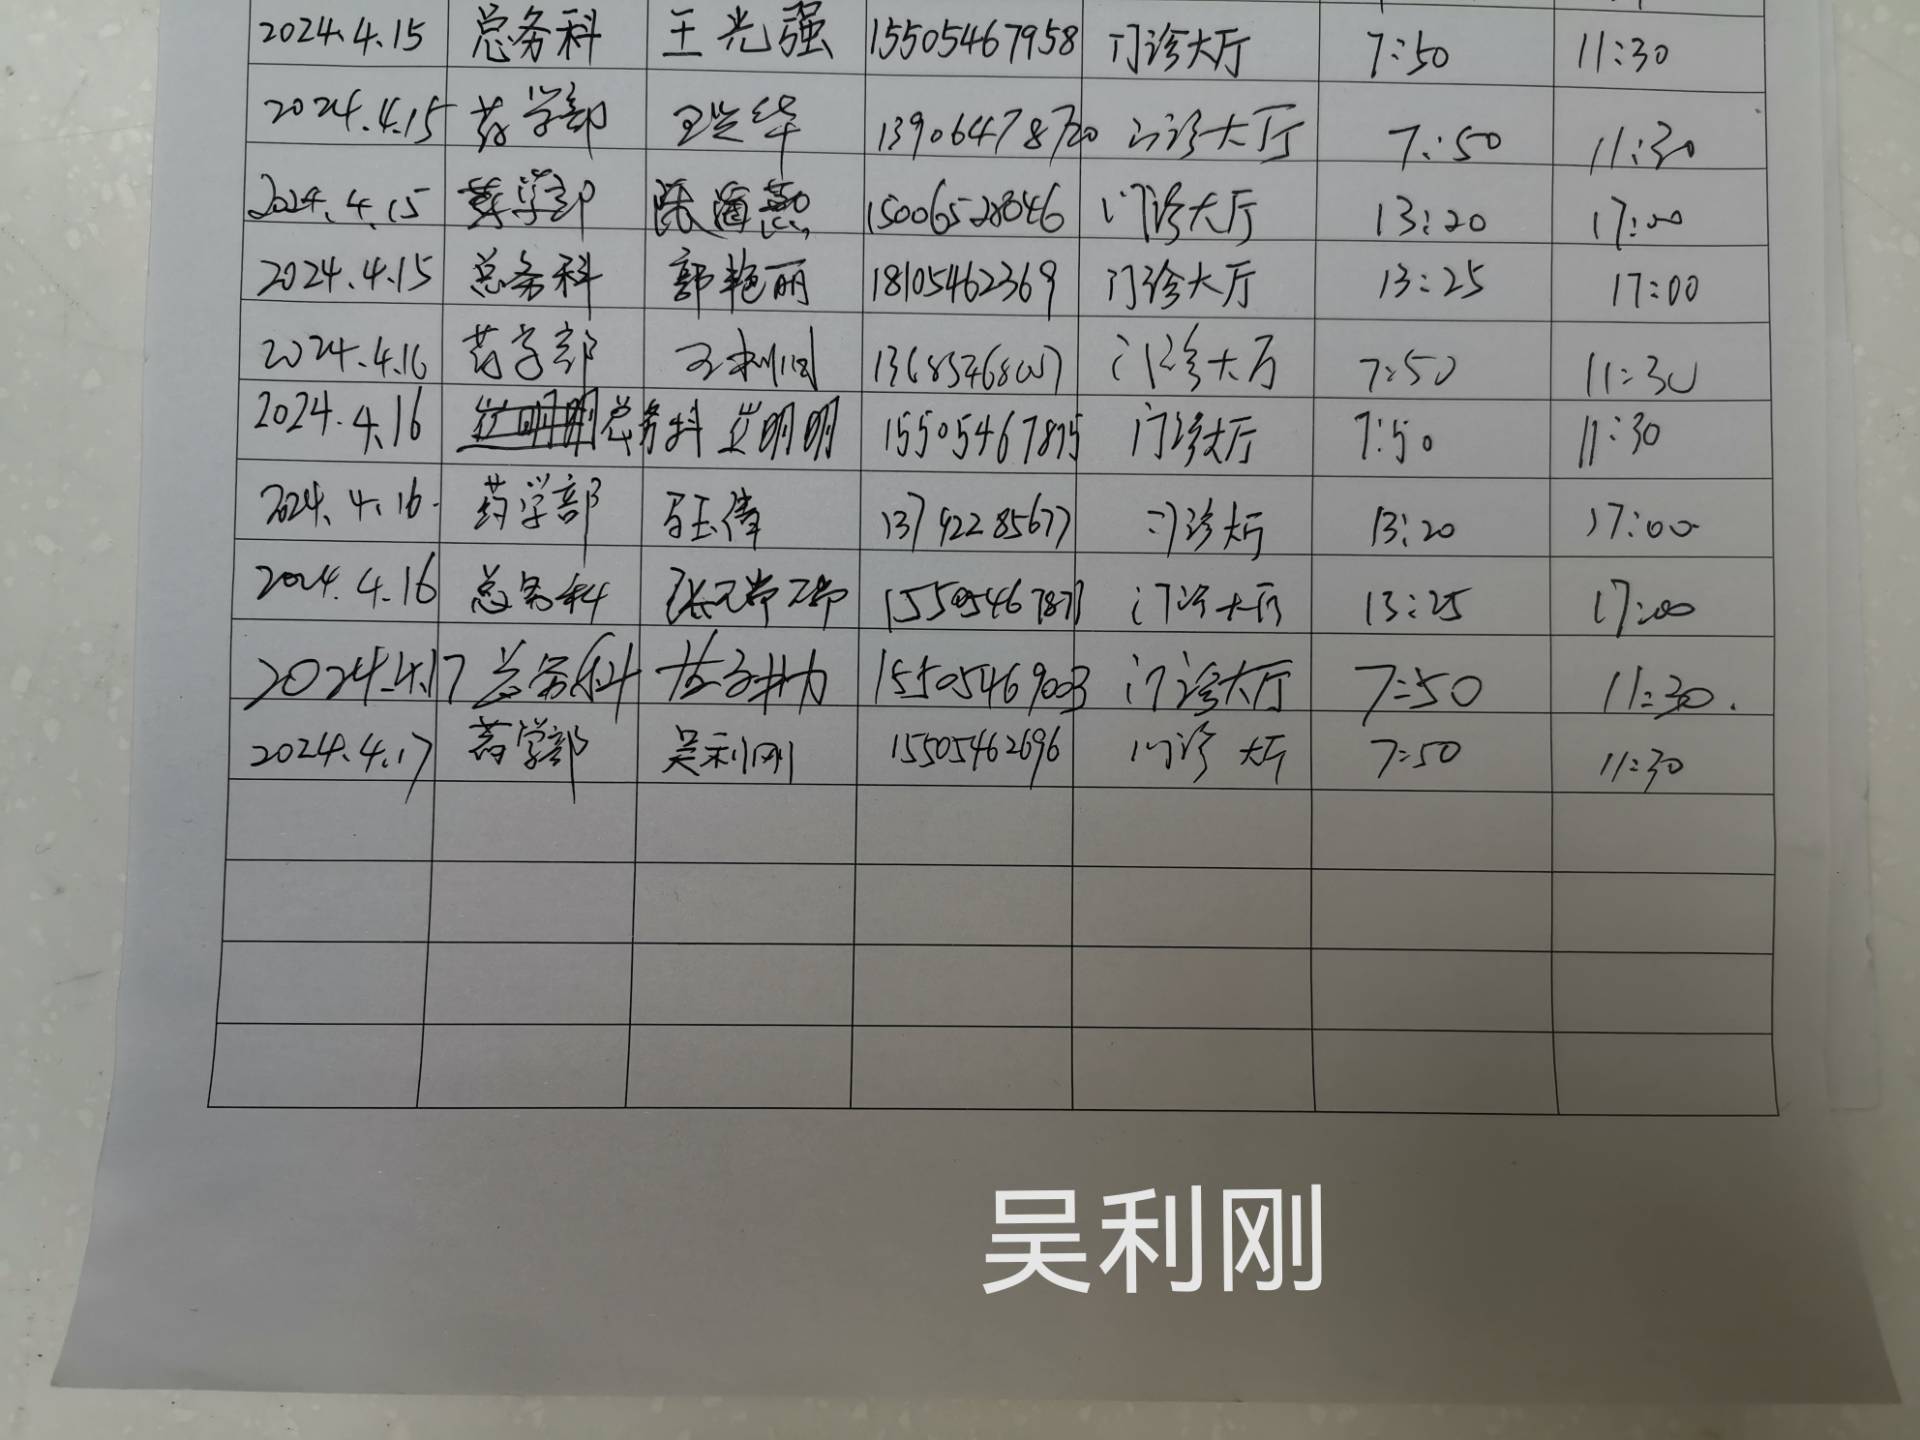 2024.4.15 总务科 王光强 15505467958 门诊大厅 7:50 11:30
2024.4.15 药学部 王兴华 13906478720 门诊大厅 7:50 11:30
2024.4.15 药学部 15006528046 门诊大厅 13:20 17:00
2024.4.15 总务科 郭艳丽 18105462369 门诊大厅 13:25 17:00
2024.4.16 药学部 门诊大厅 7:50 11:30
2024.4.16 总务科 崔明明 15505467875 门诊大厅 7:50 11:30
2024.4.16. 药学部 13792285677 门诊大厅 13:20 17:00
2024.4.16 总务科 门诊大厅 13:25 17:00
2024.4.17 总务科 15505469003 门诊大厅 7:50 11:30.
2024.4.17 药学部 吴利刚 15505462696 门诊大厅 7:50 11:30
吴利刚